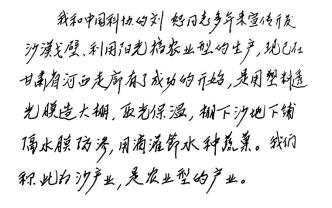 我和中国科协的刘恕同志多年来宣传开发
沙漠戈壁、利用阳光搞农业型的生产，现已在
甘肃省河西走廊有了成功的开始，是用塑料透
光膜造大棚，取光保温，棚下沙地下铺
隔水膜防渗，用滴灌节水种蔬菜。我们
称此为沙产业，是农业型的产业。